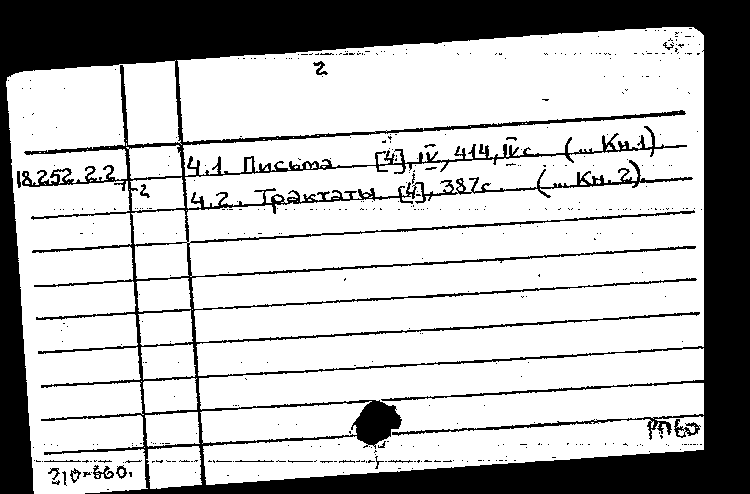 2
4.1. Письма. [4], IV, 414, IV с. (... Кн.1).
18.252.2.2 1-2
4.2. Трактаты. [4], 387с. (... Кн. 2).
210-660.